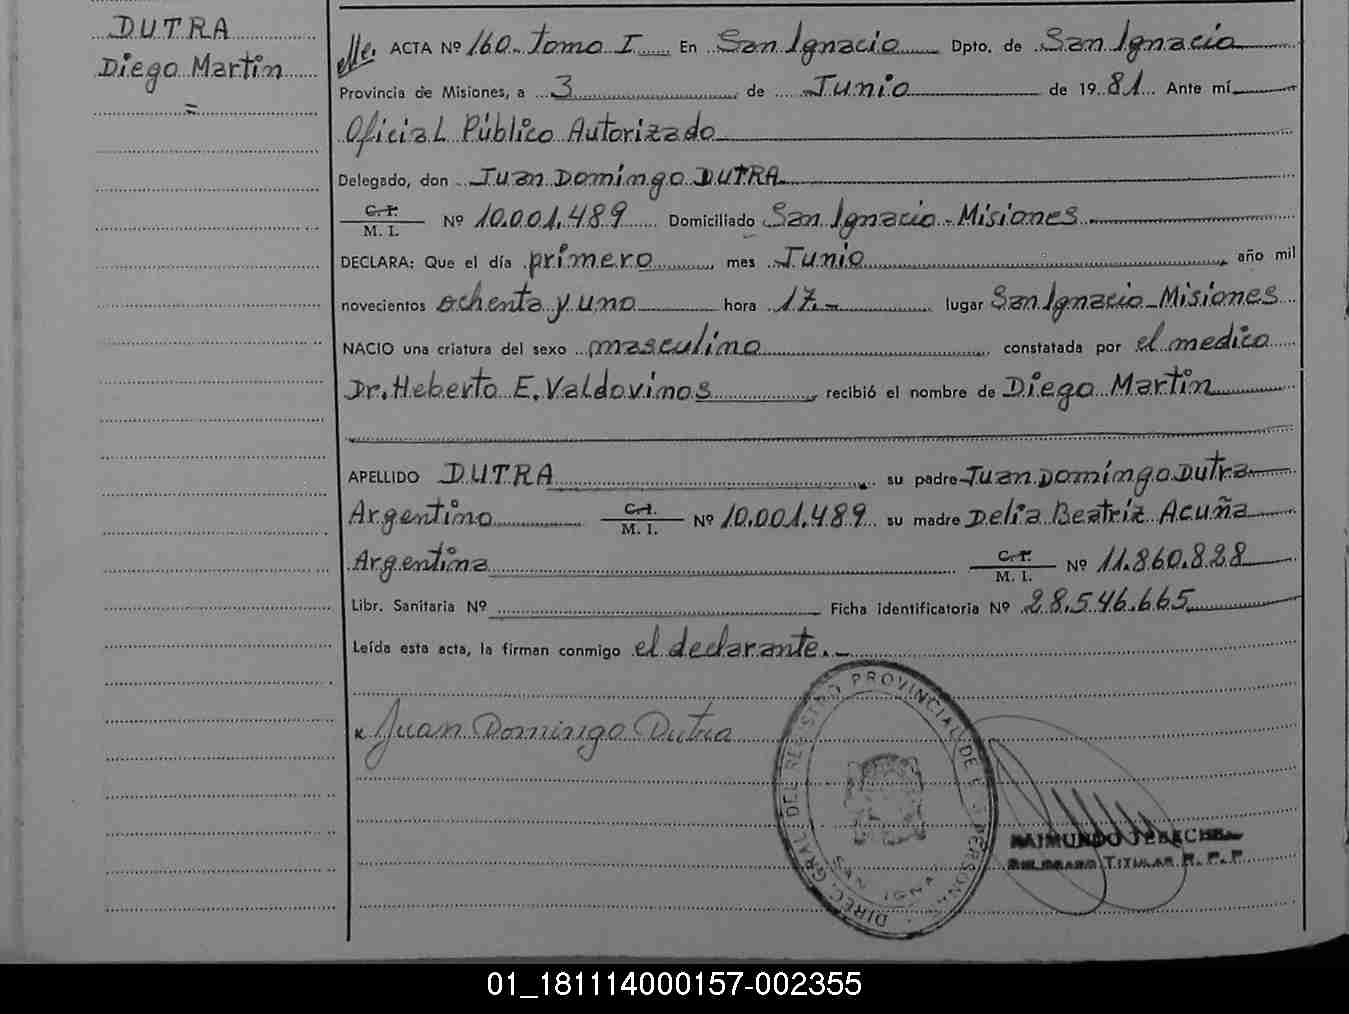 DUTRA
Diego Martin
=
ACTA Nº 160. Tomo I En San Ignacio Dpto. de San Ignacio
Provincia de Misiones, a 3 de Junio de 1981 Ante mí
Oficial Público Autorizado
Delegado, don Juan Domingo DUTRA
C. I.
M. I. Nº 10.001.489 Domiciliado San Ignacio - Misiones
DECLARA: Que el día primero, mes Junio, año mil
novecientos ochenta y uno hora 17.- lugar San Ignacio - Misiones
NACIO una criatura del sexo masculino, constatada por el medico
Dr. Heberto E. Valdovinos, recibió el nombre de Diego Martin
APELLIDO DUTRA, su padre Juan Domingo Dutra
Argentino C. I. M. I. Nº 10.001.489 su madre Delia Beatriz Acuña
Argentina C. I. M. I. Nº 11.860.828
Libr. Sanitaria Nº Ficha identificatoria Nº 28.546.665
Leída esta acta, la firman conmigo el declarante.-
Juan Domingo Dutra
DIREC. GRAL. DEL REGISTRO PROVINCIAL DE
SAN IGNA
RAIMUNDO
TITULAR R. P. P.
01_181114000157-002355